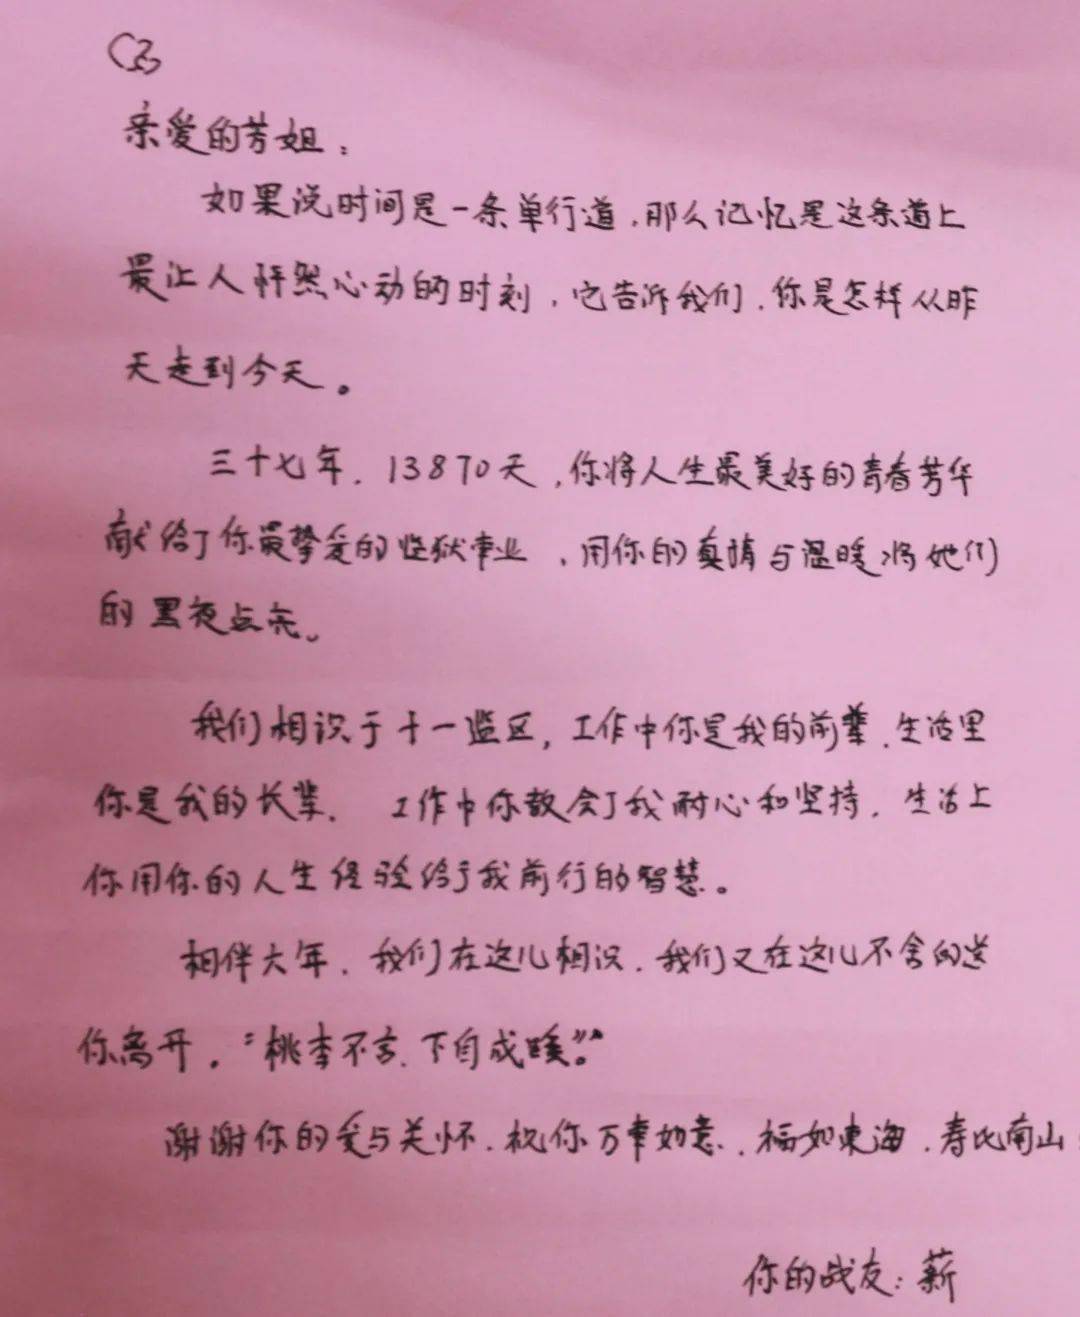 亲爱的芳姐：
如果说时间是一条单行道，那么记忆是这条道上
最让人怦然心动的时刻，它告诉我们，你是怎样从昨
天走到今天。
三十七年，13870天，你将人生最美好的青春芳华
献给了你最挚爱的监狱事业，用你的真情与温暖将她们
的黑夜点亮。
我们相识于十一监区，工作中你是我的前辈，生活里
你是我的长辈，工作中你教会了我耐心和坚持，生活上
你用你的人生经验给予我前行的智慧。
相伴六年，我们在这儿相识，我们又在这儿不舍的送
你离开，“桃李不言，下自成蹊”。
谢谢你的爱与关怀，祝你万事如意，福如东海，寿比南山
你的战友：薪